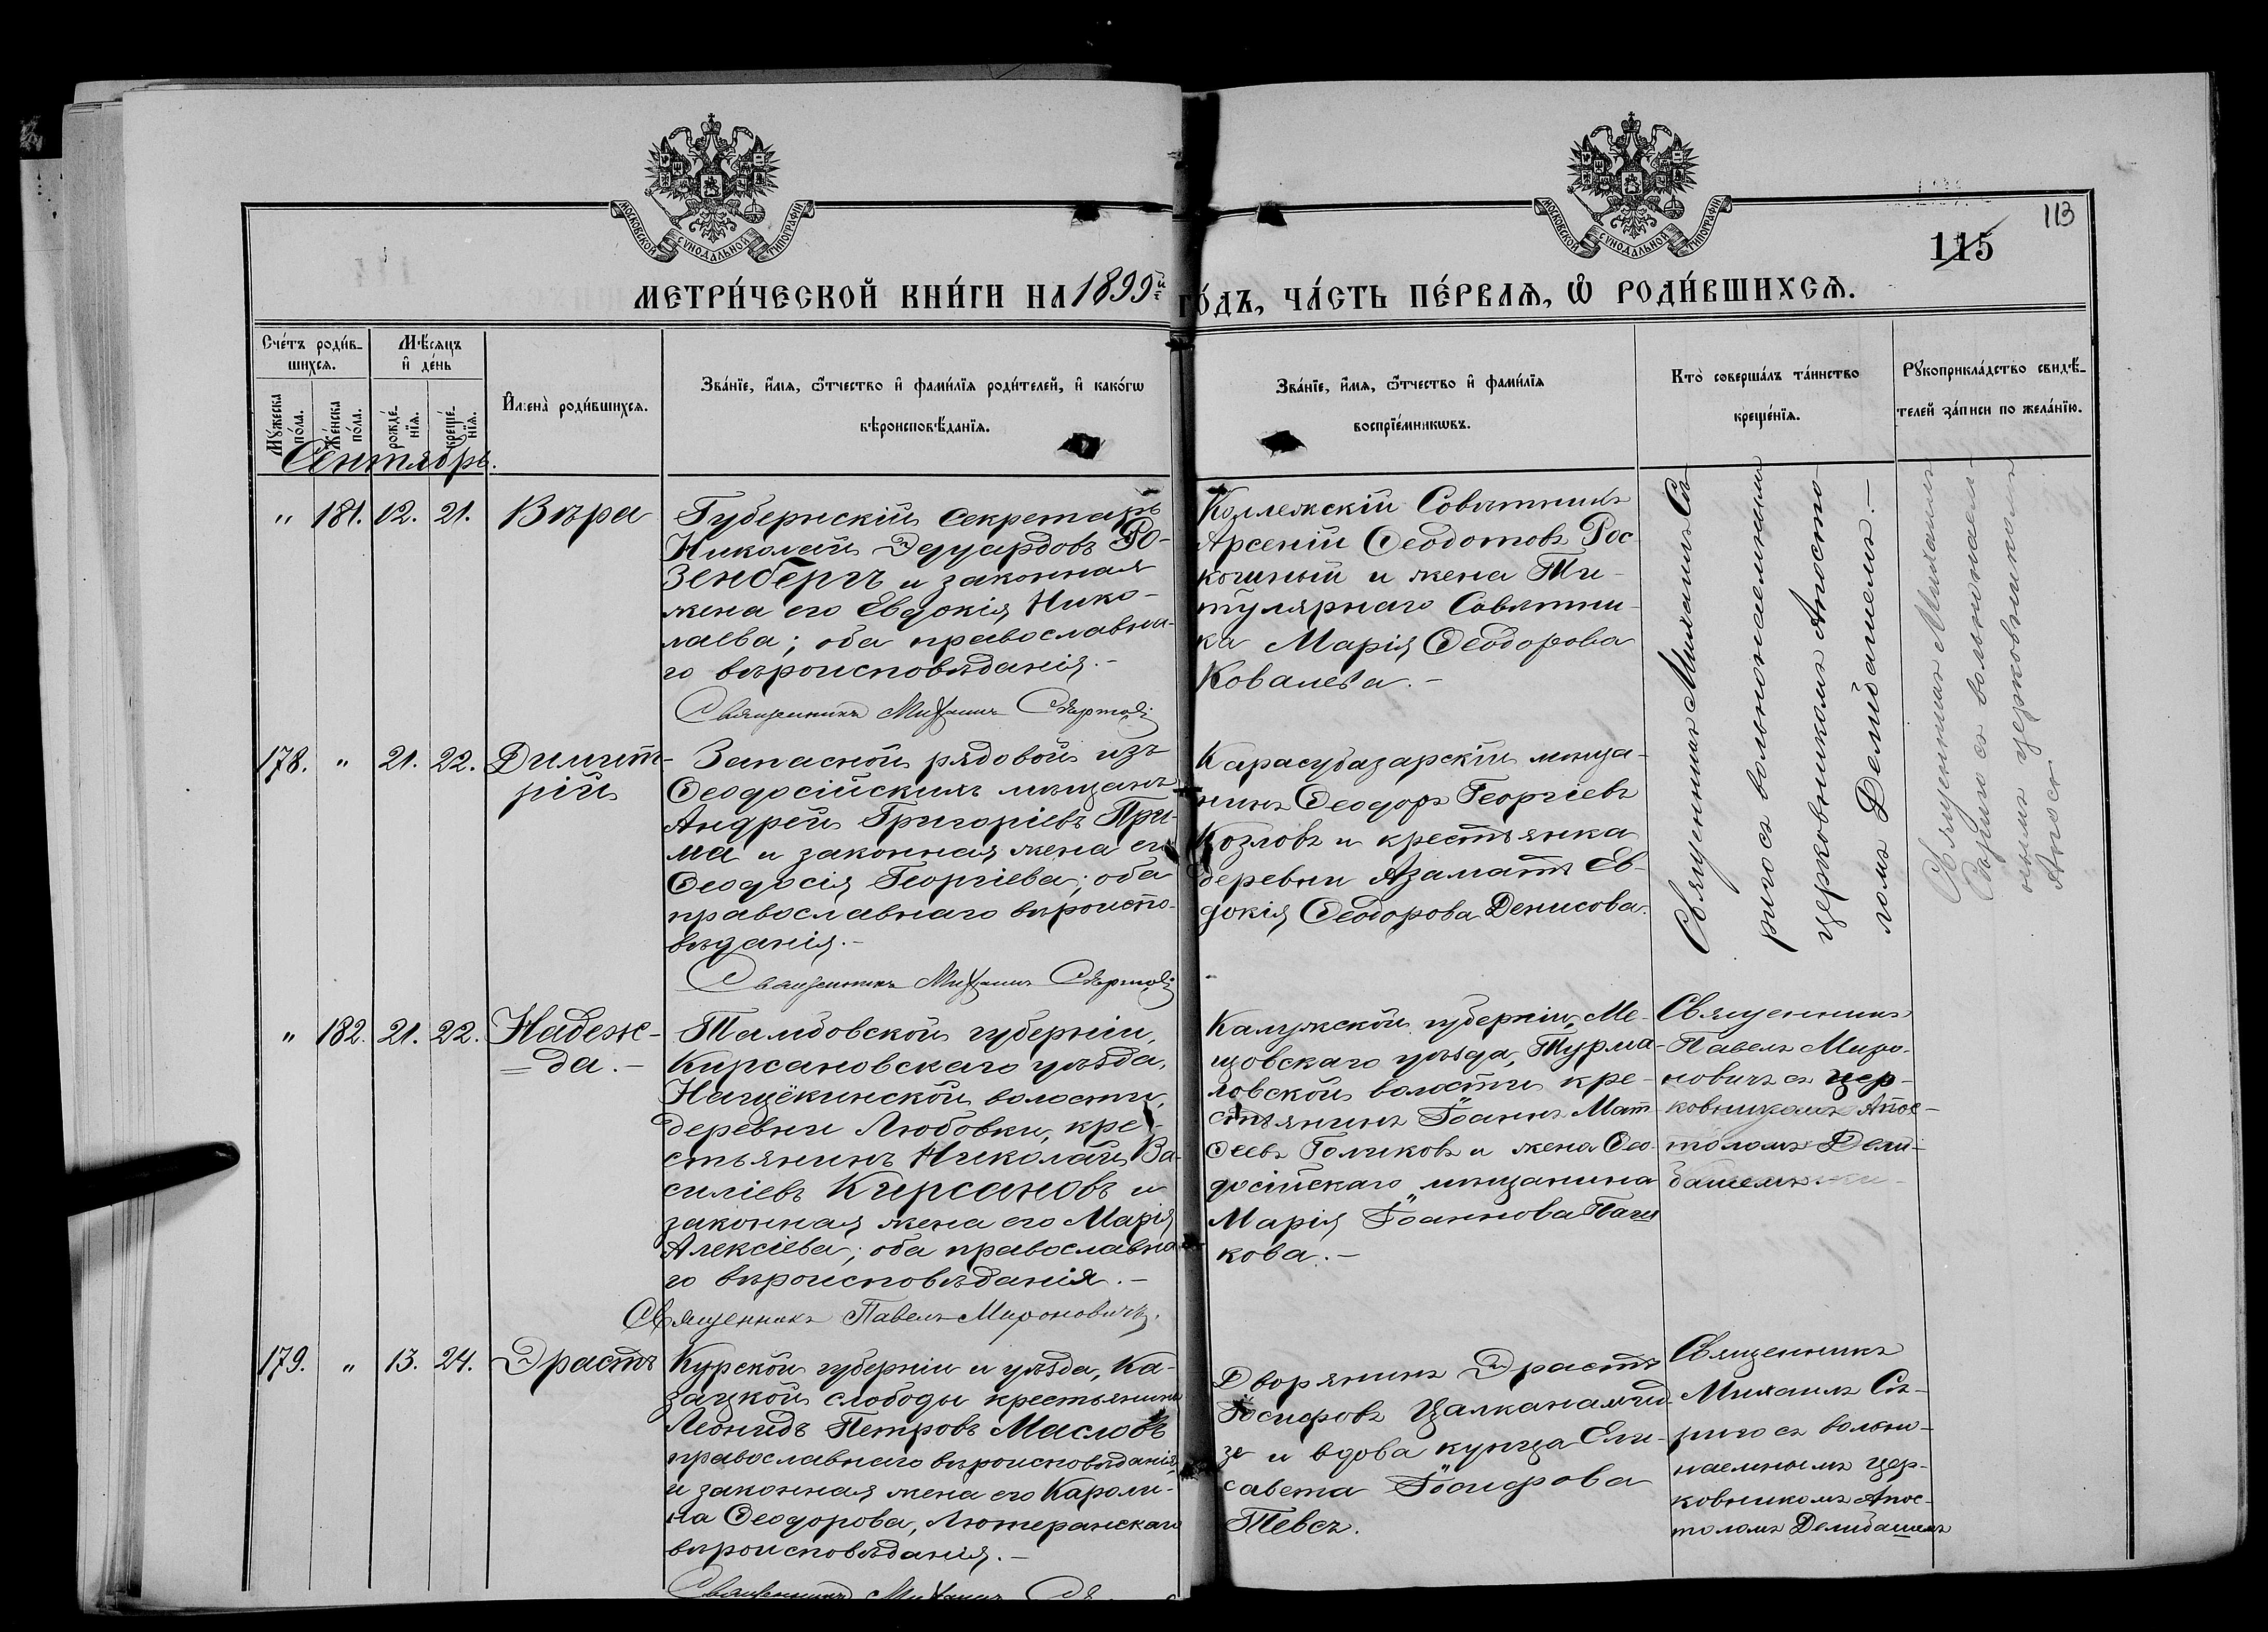 МОСКОВСКОЙ СѴНОДАЛЬНОЙ ТИПОГРАФІИ
МОСКОВСКОЙ СѴНОДАЛЬНОЙ ТИПОГРАФІИ
113
115
МЕТРИ́ЧЕСКОЙ КНИ́ГИ НА 1899й ГО́ДЪ, ЧА́СТЬ ПЕ́РВАѦ, Ѽ РОДИ́ВШИХСѦ.
Сче́тъ роди́в-
шихсѧ.
Мѣ́сяцъ
и҆ де́нь
Му́жеска
по́ла.
Же́нска
по́ла.
рожде́-
нїѧ.
креще́-
нїѧ.
И҆мена̀ роди́вшихсѧ.
Зва́нїе, и҆́мѧ, ѻ҆́тчество и҆ фами́лїѧ роди́телей, и҆ како́гѡ
вѣроисповѣ́данїѧ.
Зва́нїе, и҆́мѧ, ѻ҆́тчество и҆ фами́лїѧ
воспрїе́мникѡвъ.
Кто̀ соверша́лъ та́инство
креще́нїѧ.
Рꙋкоприкла́дство свидѣ́-
телей за́писи по жела́нїю.
Сентябрь.
" 181. 12. 21. Вѣра
Губернскій Секретарь
Николай Эдуардовъ Ро-
зенбергъ и законная
жена его Евдокія Нико-
лаева; оба православна-
го вѣроисповѣданія.-
Священникъ Михаилъ
Коллежскій Совѣтникъ
Арсеній Ѳеодотовъ Рос-
кошный и жена Ти-
тулярнаго Совѣтни-
ка Марія Ѳеодорова
Ковалева.-
Священникъ Михаилъ Сѣ-
риго съ вольнонаемнымъ
церковникомъ Апосто-
ломъ Делибашемъ.-
Священникъ Михаилъ
Сѣриго съ вольнонаем-
нымъ церковникомъ
Апост.
178. " 21. 22. Димит-
рій
Запасной рядовой изъ
Ѳеодосійскихъ мѣщанъ
Андрей Григоріевъ При-
ма и законная жена его
Ѳеодосія Георгіева; оба
православнаго вѣроиспо-
вѣданія.-
Священникъ Михаилъ
Карасубазарскій мѣща-
нинъ Ѳеодоръ Георгіевъ
Козловъ и крестьянка
деревни Азаматъ Ев-
докія Ѳеодорова Денисова.
" 182. 21. 22. Надеж-
да.-
Тамбовской губерніи,
Кирсановскаго уѣзда,
Нащёкинской волости,
деревни Любовки, кре-
стьянинъ Николай Ва-
силіевъ Кирсановъ и
законная жена его Марія
Алексіева; оба православна-
го вѣроисповѣданія.-
Священникъ Павелъ Мироновичъ.
Калужской губерніи, Ме-
щовскаго уѣзда, Турма-
ловской волости кре-
стьянинъ Іоаннъ Мат-
ѳеевъ Голиковъ и жена Ѳео-
досійскаго мѣщанина
Марія Іоаннова
кова.-
Священникъ
Павелъ Миро-
новичъ съ цер-
ковникомъ Апос-
толомъ Дели-
башемъ.
179. " 13. 24. Эрастъ
Курской губерніи и уѣзда, Ка-
зацкой слободы крестьянинъ
Леонидъ Петровъ Масловъ
православнаго вѣроисповѣданія,
и законная жена его Кароли-
на Ѳеодорова, Лютеранскаго
вѣроисповѣданія.-
Священникъ Михаилъ
Дворянинъ Эрастъ
Іосифовъ
и вдова купца Ели-
савета Іосифова
Тевсъ.
Священникъ
Михаилъ Сѣ-
риго съ вольно-
наемнымъ цер-
ковникомъ Апос-
толомъ Делибашемъ